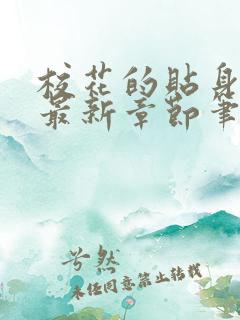 校花的贴身
最新章节笔
兮然
未经同意禁止转载